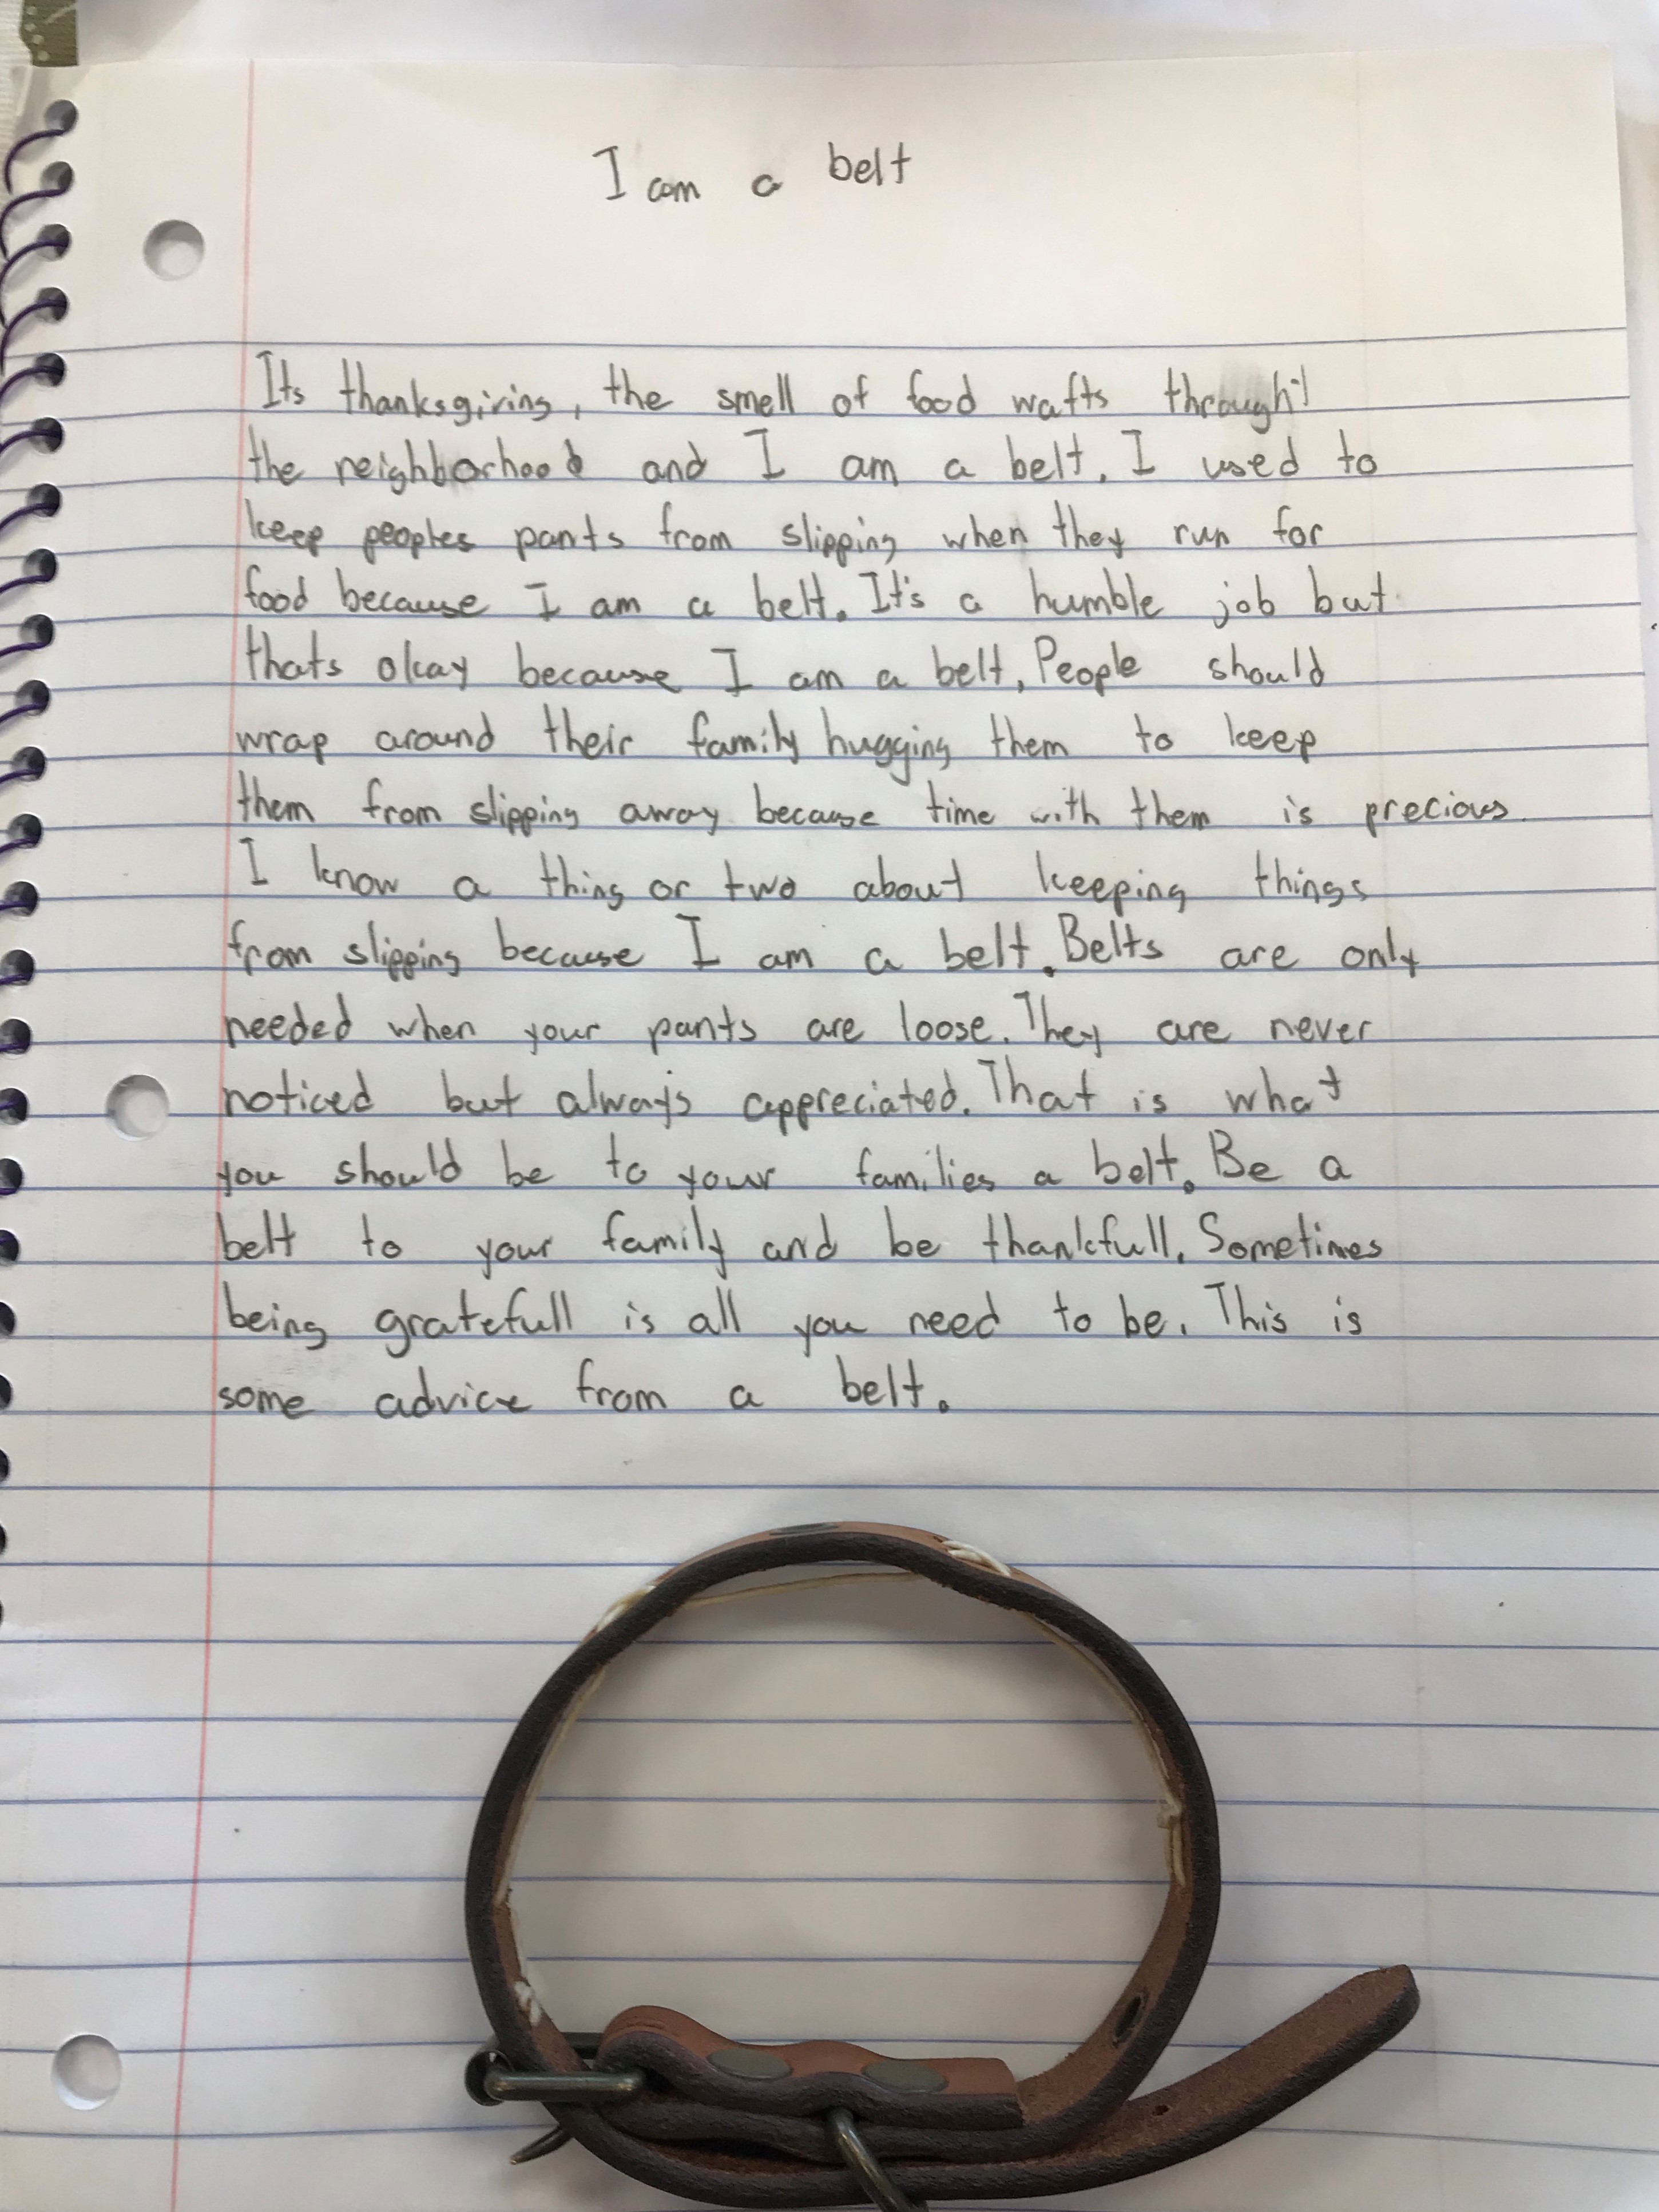 I am a belt
Its thanksgiving, the smell of food wafts through
the neighborhood and I am a belt. I used to
keep peoples pants from slipping when they run for
food because I am a belt. It's a humble job but
thats okay because I am a belt. People should
wrap around their family hugging them to keep
them from slipping away because time with them is precious.
I know a thing or two about keeping things
from slipping because I am a belt. Belts are only
needed when your pants are loose. They are never
noticed but always appreciated. That is what
you should be to your families a belt. Be a
belt to your family and be thankfull. Sometimes
being gratefull is all you need to be. This is
some advice from a belt.